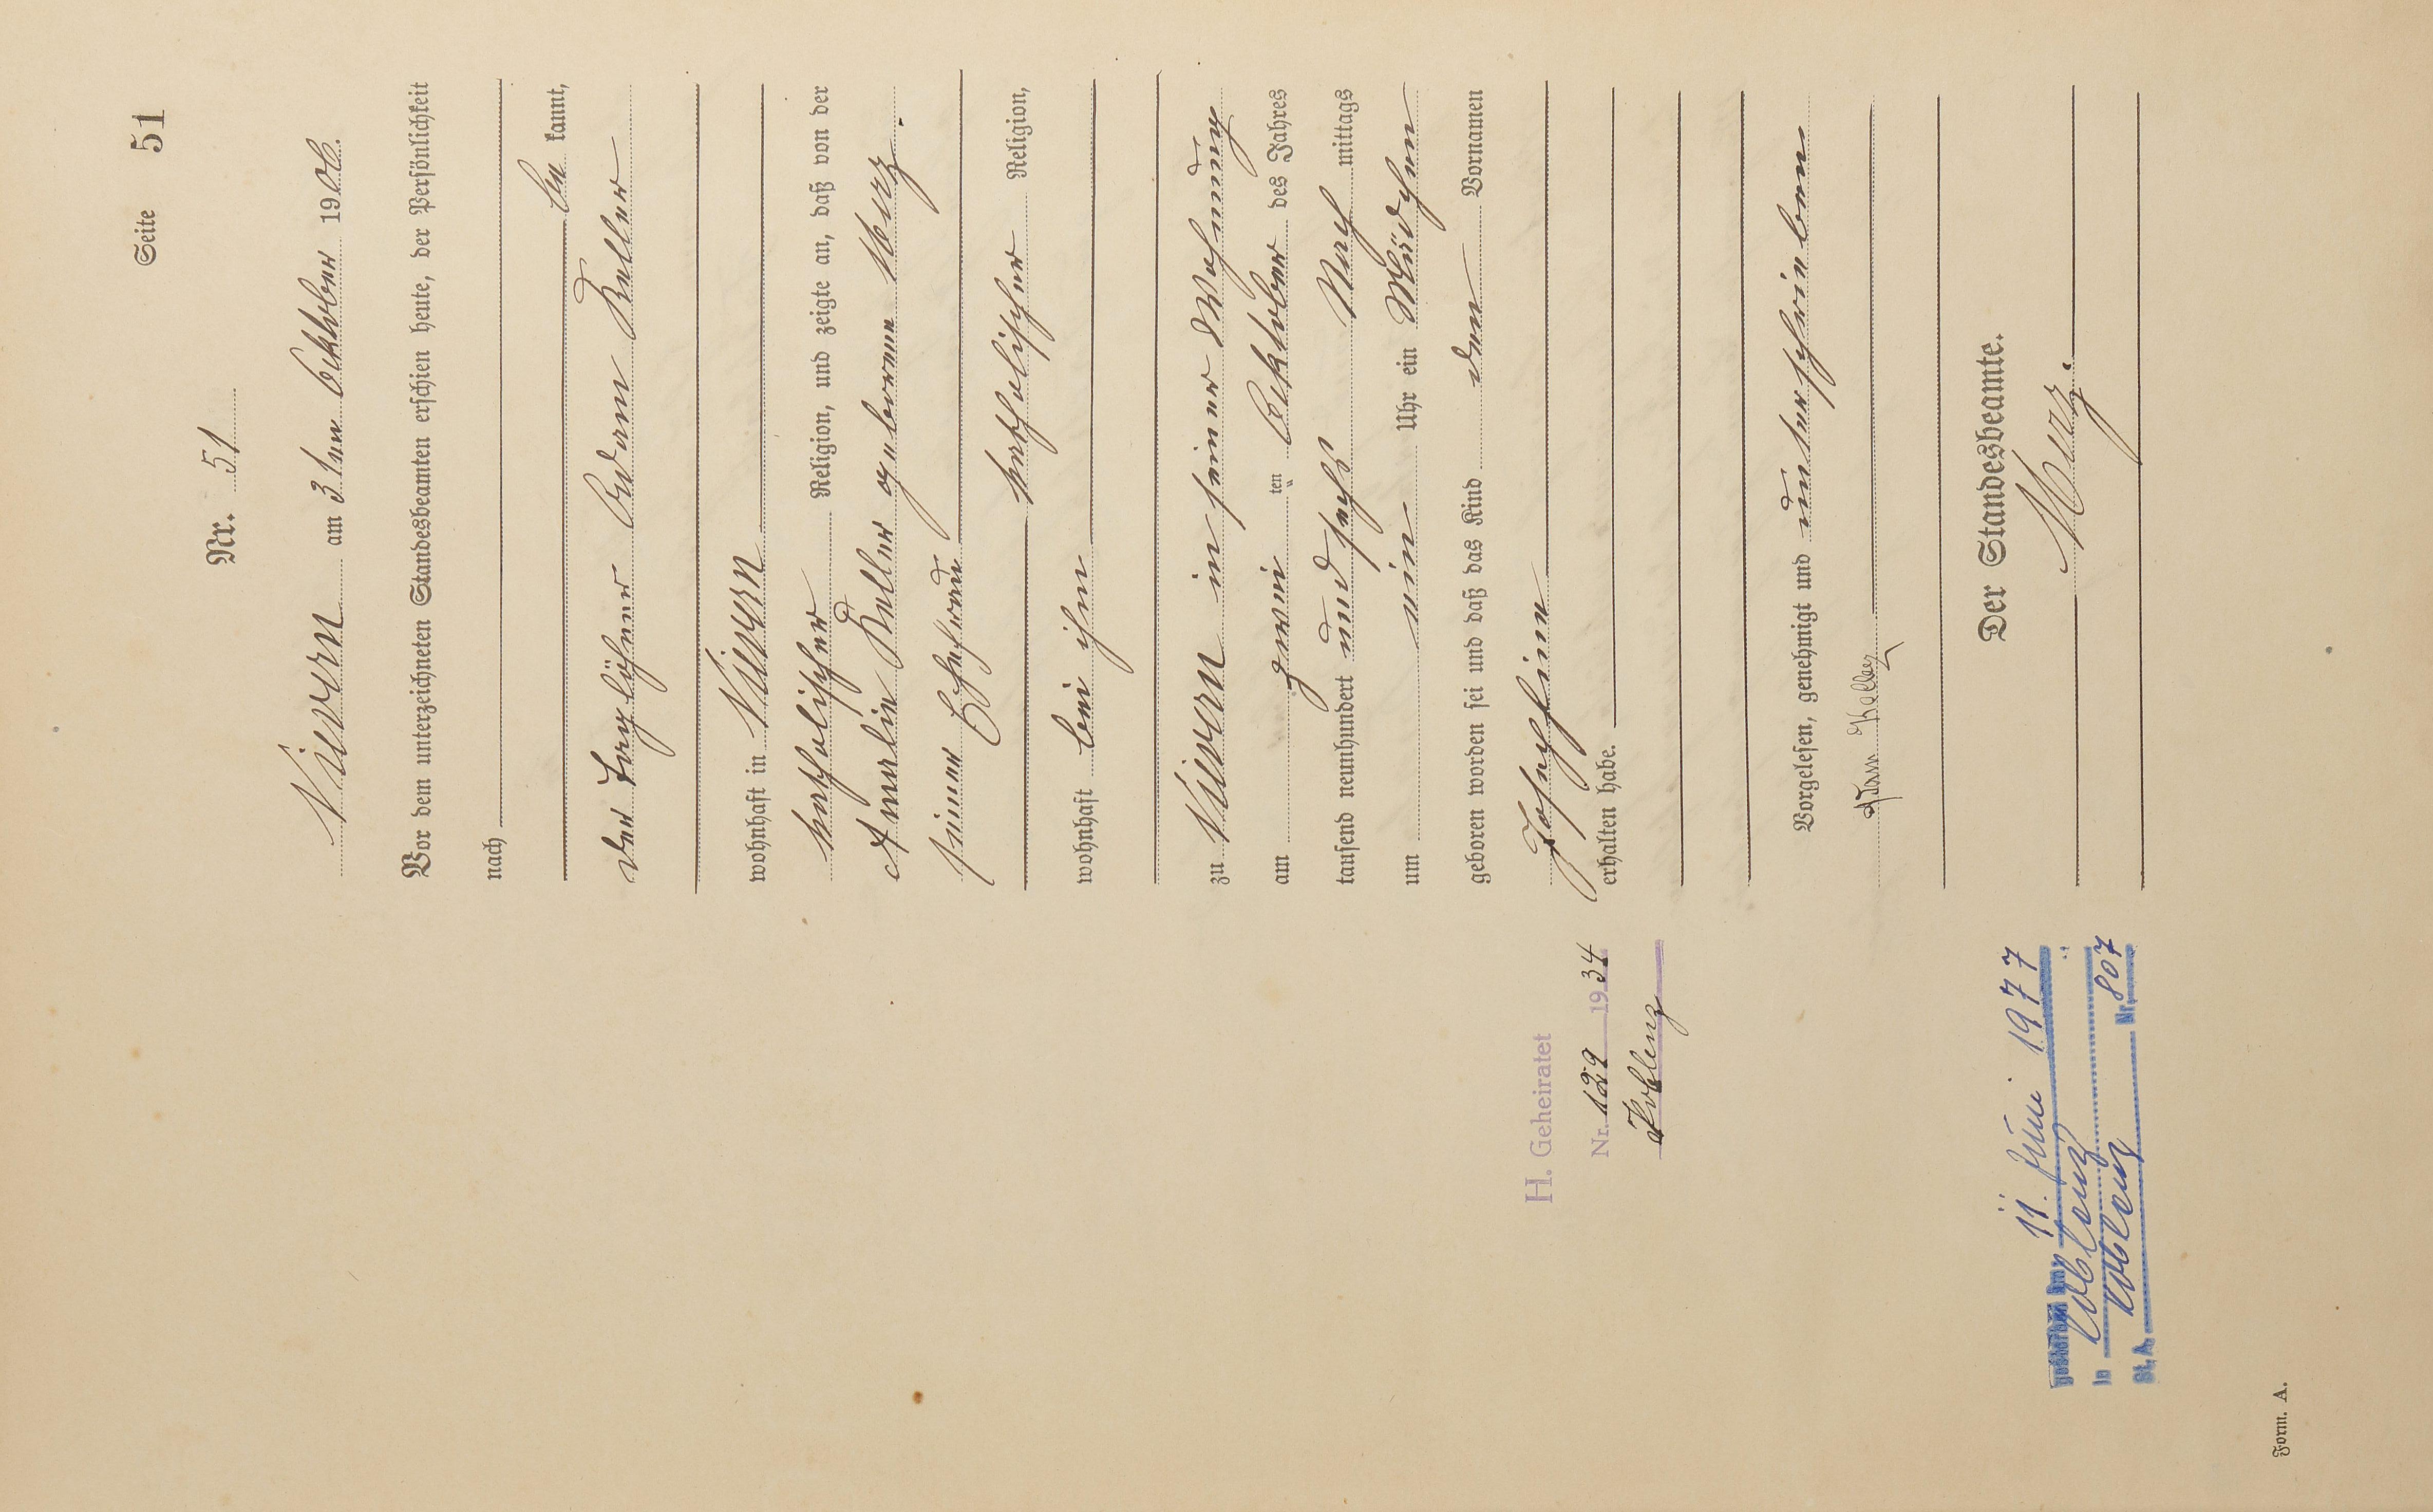 Seite 51
Nr. 51
Nievern am 3ten Oktober 1906.
Vor dem unterzeichneten Standesbeamten erschien heute, der Persönlichkeit
nach
be kannt,
der Tagelöhner Adam Keller
wohnhaft in Nievern
katholischer Religion, und zeigte an, daß von der
Amalie Keller geborenen Merz
seiner Ehefrau
katholischer Religion,
wohnhaft bei ihm
zu Nievern in seiner Wohnung
am zwei ten Oktober des Jahres
tausend neunhundert und sechs Nach mittags
um ein Uhr ein Mädchen
geboren worden sei und daß das Kind den Vornamen
Josephine
erhalten habe.
Vorgelesen, genehmigt und unterschrieben
Adam Keller
Der Standesbeamte.
Merz.
H. Geheiratet
Nr. 129 1934
Koblenz
gestorben am 11. Juni 1977
in Koblenz
St. A. Koblenz Nr. 807
Form. A.